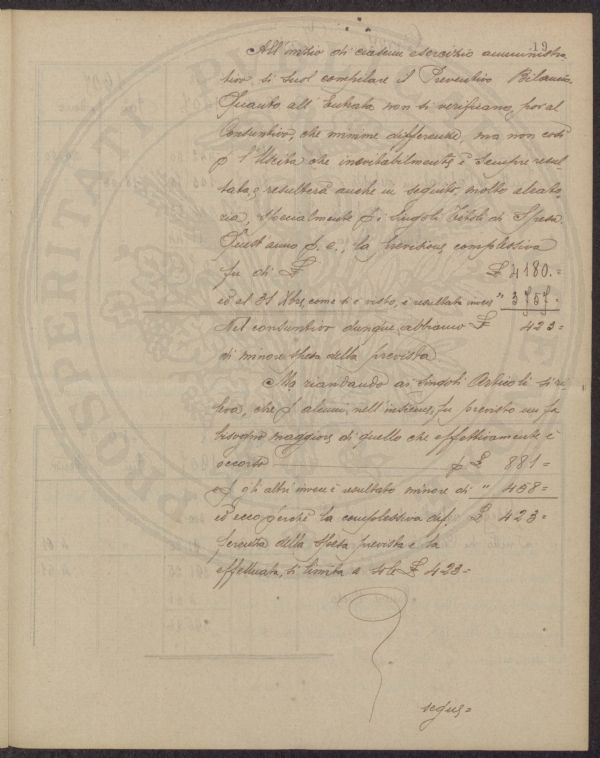 19
All'inizio di ciascun esercizio amministra-
tivo si suol compilare il Preventivo Bilancio.
Quanto all'Entrata non si verificano, poi al
Consuntivo, che minime differenze, ma non così
p l'Uscita che inevitabilmente, è sempre resul-
tata, e resulterà anche in seguito, molto aleato-
ria, specialmente p i singoli Titoli di Spesa.
Quest'anno p. e., la previsione complessiva
fu di £ £ 4180.=
ed al 31 Xbre, come si è visto, è resultata invece " 3757.=
Nel consuntivo dunque, abbiamo £ 423=
di minore spesa della prevista.
Ma riandando ai singoli Articoli si ri-
leva, che p alcuni, nell'insieme, fu previsto un fa-
bisogno maggiore di quello che effettivamente è
occorso p £ 881=
e p gli altri invece è resultato minore di " 458=
ed ecco perchè la complessiva dif- £ 423=
ferenza della spesa prevista e la
effettuata, si limita a sole £ 423=
segue=
PROSPERITATI PUBLICAE